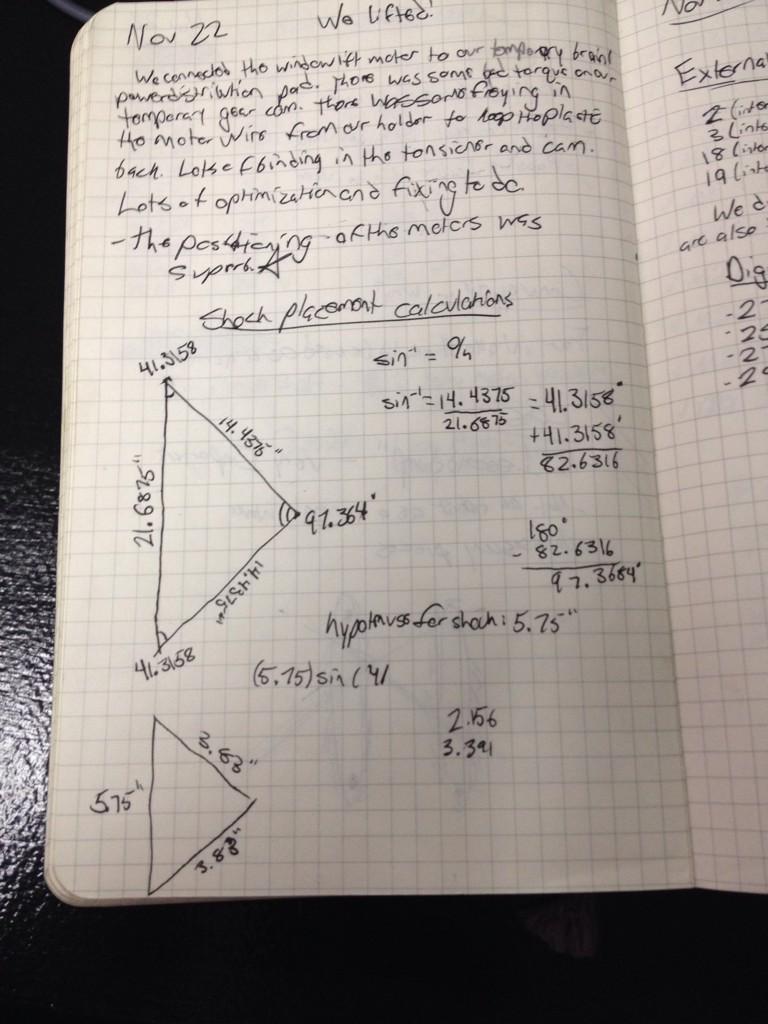 Nov 22
We lifted!
We connected the window lift motor to our temporary brain/
power distribution pad. There was some bad torque on our
temporary gear cam. There was some fraying in
the motor wire from our holder to loop the plastic
back. Lots of binding in the tensioner and cam.
Lots of optimization and fixing to do.
- the positioning of the motors was
superb.
Shock placement calculations
41.3158
14.4375"
21.6875"
97.364°
14.4375"
41.3158
sin⁻¹ = o/h
sin⁻¹ = 14.4375 = 41.3158°
21.6875
+41.3158°
82.6316
180°
- 82.6316
97.3684°
hypotnuse for shock: 5.75"
(5.75) sin (41
2.156
3.391
3.83"
5.75"
3.83"
Nov
External
2 (inter
3 (inte
18 (inter
19 (inte
We d
are also
Dig
-2
-25
-2
-2